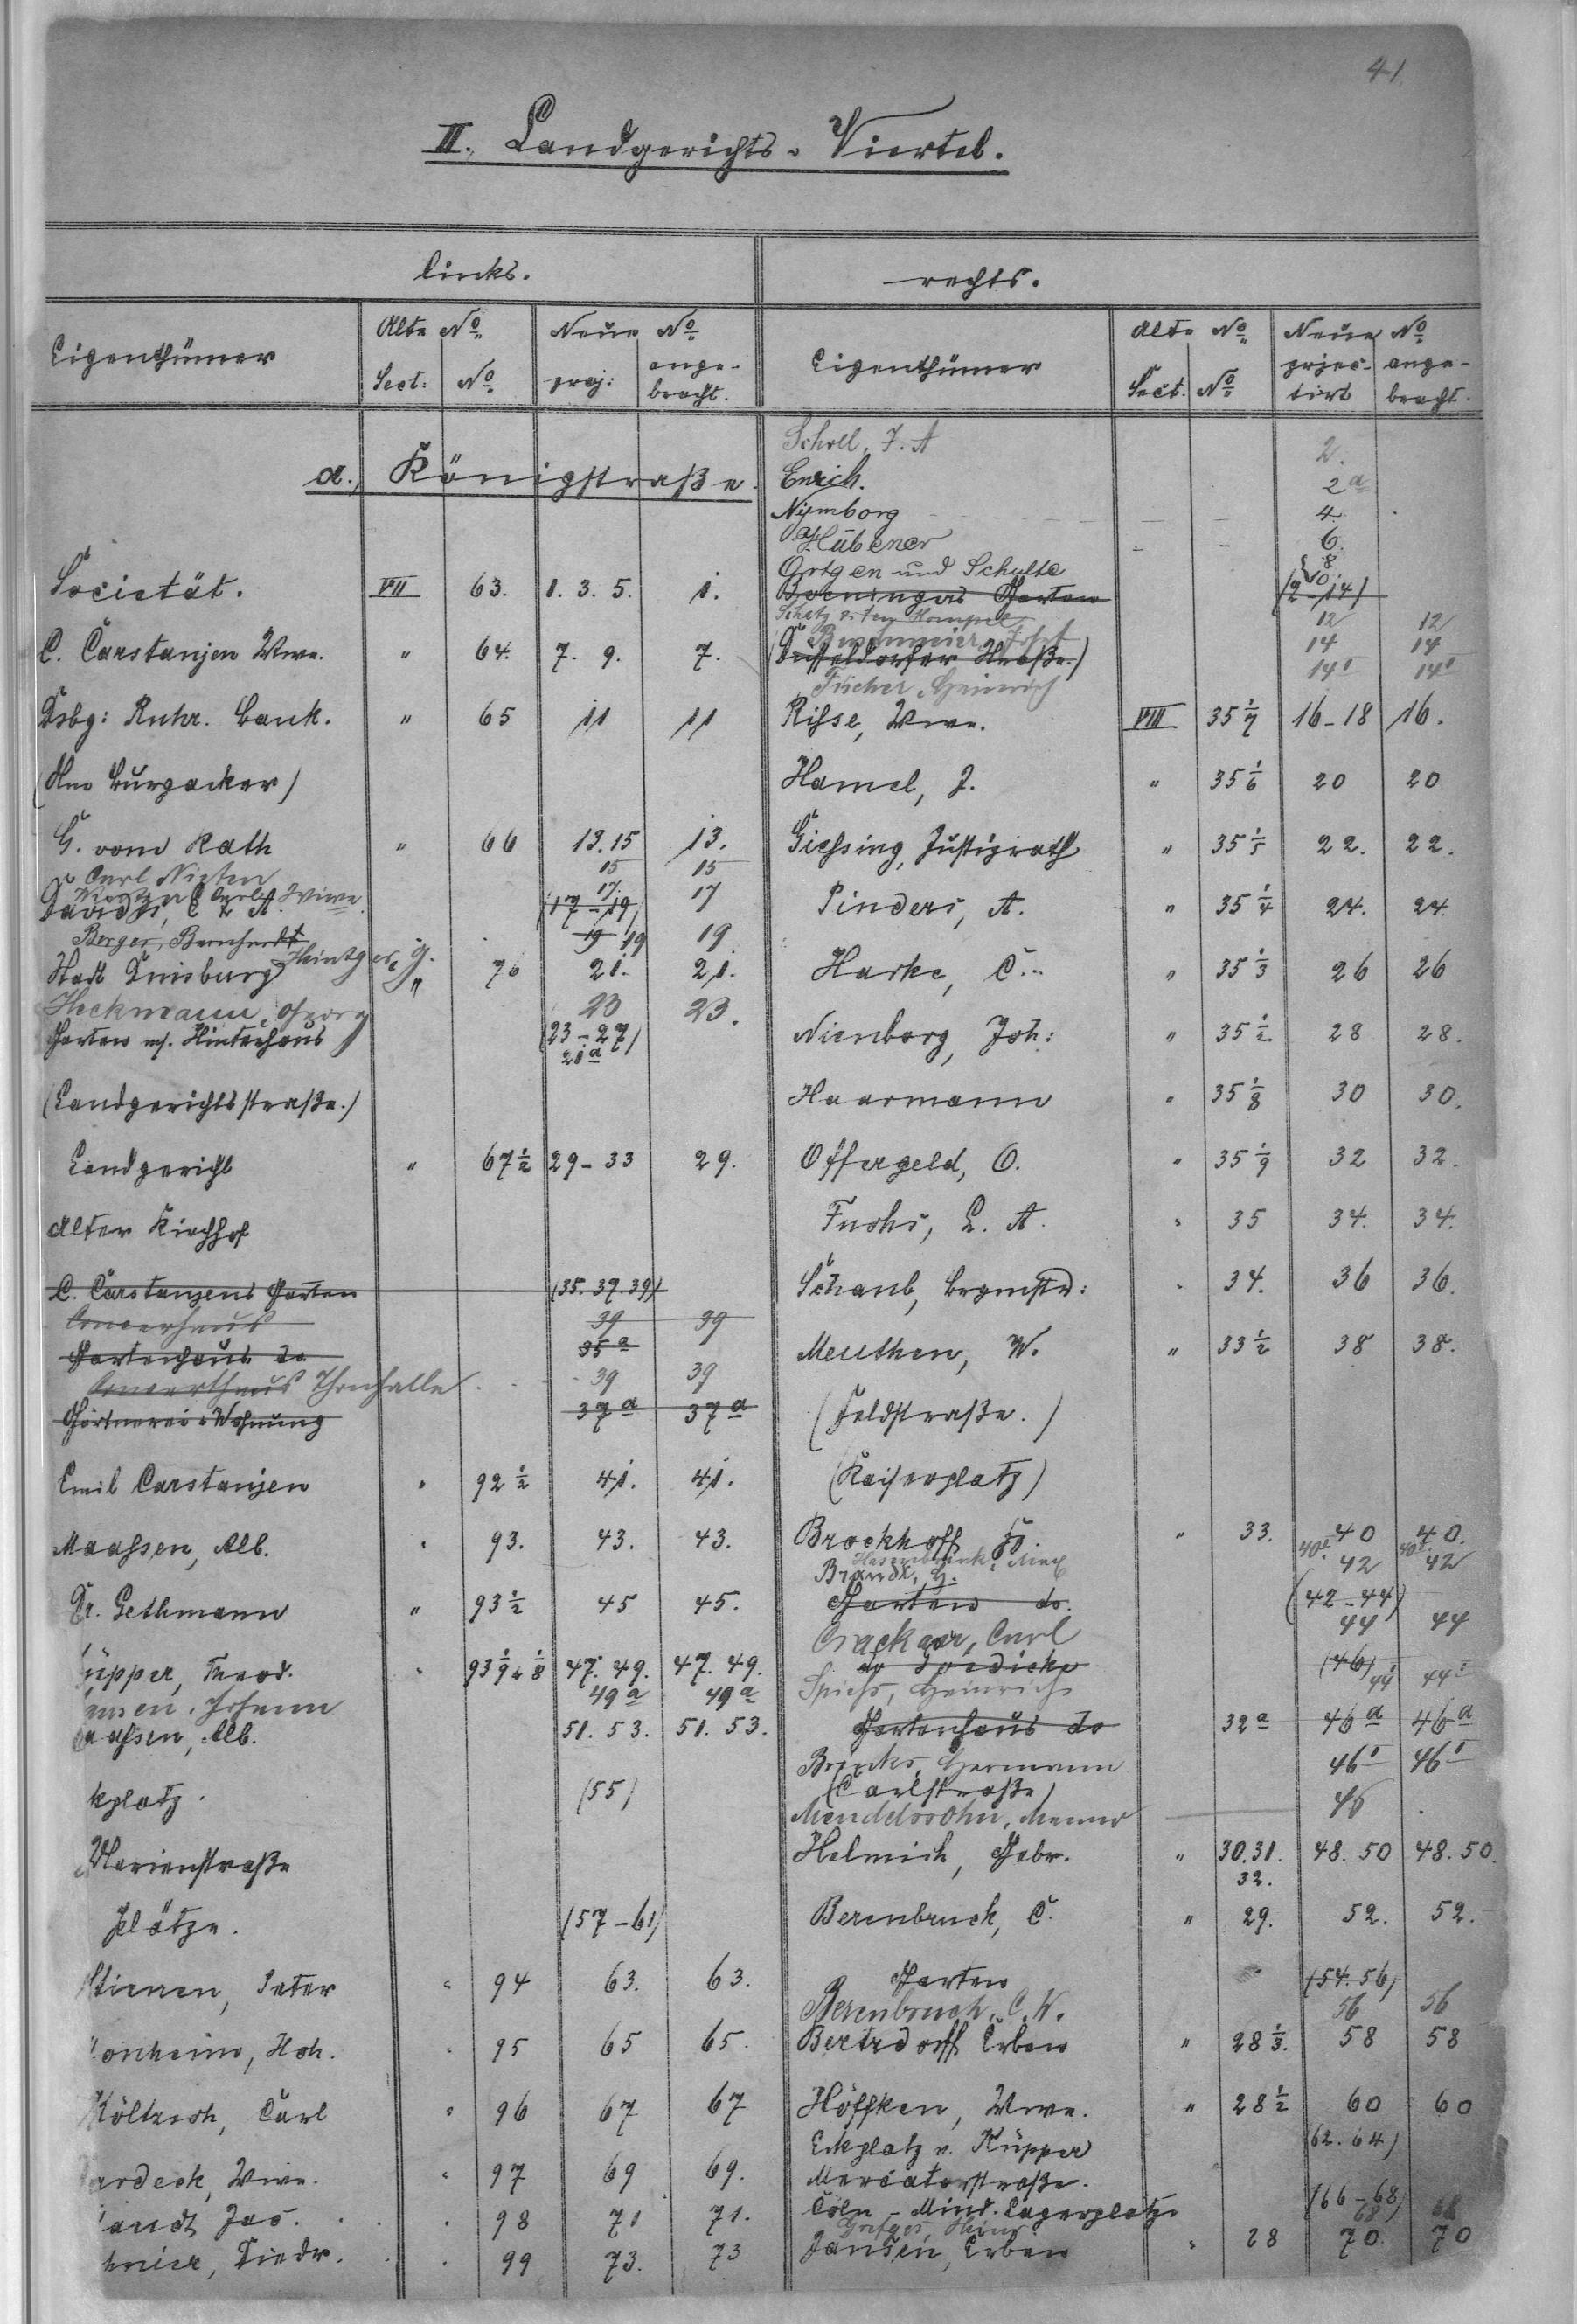 41
II. Landgerichts-Viertel.
links.
rechts.
Eigenthümer
Alte No
Sect: No
Neue No
proj: ange-bracht.
Eigenthümer
Alte No
Sect. No
Neue No
projec-tirt ange-bracht.
a. Königstraße.
Scholl, J. A 2.
Enrich. 2a
Nymborg 4.
Hübener 6.
Ortgen und Schulte 8
Societät. VII 63. 1. 3. 5. 1.
Boeningers Garten (2-14)
12 12
C. Carstanjen Wwe. " 64. 7. 9. 7.
Josef 14 14
(Düsseldorfer Straße.)
Fischer, Heinrich 14I 14I
Dsbg: Ruhr. Bank. " 65 11 11
Risse, Wwe. VIII 35 1/7 16-18 16.
(Am Burgacker)
Hamel, J. " 35 1/6 20 20
G. vom Rath " 66 13.15 13.
Giessing, Justizrath " 35 1/5 22. 22.
Carl Nieten 15 15
Carl Wwe 17. 17
Davidis, C & A. (17-19)
Pinders, A. " 35 1/4 24. 24.
Berger, Bernhardt 19 19 19
Stadt Duisburg " 76 21. 21.
Harke, C. " 35 1/3 26 26
Heckmann, Georg 23 23.
Garten m. Hinterhaus (23-27) 21a
Nienborg, Joh: " 35 1/2 28 28.
(Landgerichtsstraße.)
Haarmann " 35 1/8 30 30.
Landgericht " 67 1/2 29-33 29.
Offergeld, O. " 35 1/9 32 32.
Alter Kirchhof
Fuchs, L. A. " 35 34. 34.
C. Carstanjens Garten (35. 37. 39)
Schaub, Brgmstr: " 34. 36 36.
39 39
Gartenhaus do 35a
Meuthen, W. " 33 1/2 38 38.
Tonhalle 39 39
Gärtnerei-Wohnung 37a 37a
(Feldstraße.)
Emil Carstanjen " 92 1/2 41. 41.
(Kaiserplatz)
Maassen, Alb. " 93. 43. 43.
Brockhoff, Fr. " 33. 40 40.
40I. 40I.
Brandt, H. 42 42
Dr. Gethmann " 93 1/2 45 45.
Garten do. (42-44)
Carl 44 44
üpper, Theod. " 93 1/9 & 1/8 47. 49. 47. 49.
do (46)
ansen, Johann 49a 49a
Spiess, Heinrich 44I 44I
aassen, Alb. 51. 53. 51. 53.
Gartenhaus do 32a 46a 46a
Brinks, Hermann 46I 46I
kplatz. (55)
(Carlstraße)
Mendelssohn, 46
Marienstraße
Helmich, Gebr. " 30. 31. 32. 48. 50 48. 50.
Plätze. (57-61)
Berenbruck, C. " 29. 52. 52.
Stienen, Peter " 94 63. 63.
Garten (54. 56)
Berenbruch, C. W. 56 56
onheim, Hch. " 95 65 65.
Bertrdorff Erben " 28 1/3. 58 58
Költzsch, Carl " 96 67 67
Höffken, Wwe. " 28 1/2 60 60
Eckplatz v. Küpper (62. 64)
ardeck, Wwe. " 97 69 69.
Mercatorstraße.
andt Jac. " 98 71 71.
Cöln-Mind. Lagerplatz (66-68)
68 68
hnier, Diedr. " 99 73. 73
Jansen, Erben " 28 70. 70